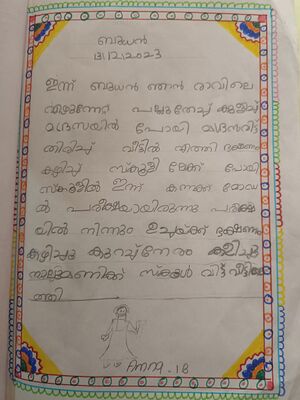 ബുധൻ
13/12/2023
ഇന്ന് ബുധൻ ഞാൻ രാവിലെ
എഴുന്നേറ്റ് പല്ലുതേച്ച് കുളിച്ച്
മദ്രസയിൽ പോയി മദ്രസവിട്ട
തിരിച്ച് വീട്ടിൽ എത്തി ഭക്ഷണം
കഴിച്ച് സ്കൂളി ലേക്ക് പോയി
സ്കൂളിൽ ഇന്ന് കണക്ക് മോഡ
ൽ പരീക്ഷയായിരുന്നു പരീക്ഷ
യിൽ നിന്നും ഉച്ചയ്ക്ക് ഭക്ഷണം
കഴിച്ചു കുറച്ച്നേരം കളിച്ചു
നാലുമണിക്ക് സ്കൂൾ വിട്ട് വീട്ടിലെ
ത്തി
Amna . 18